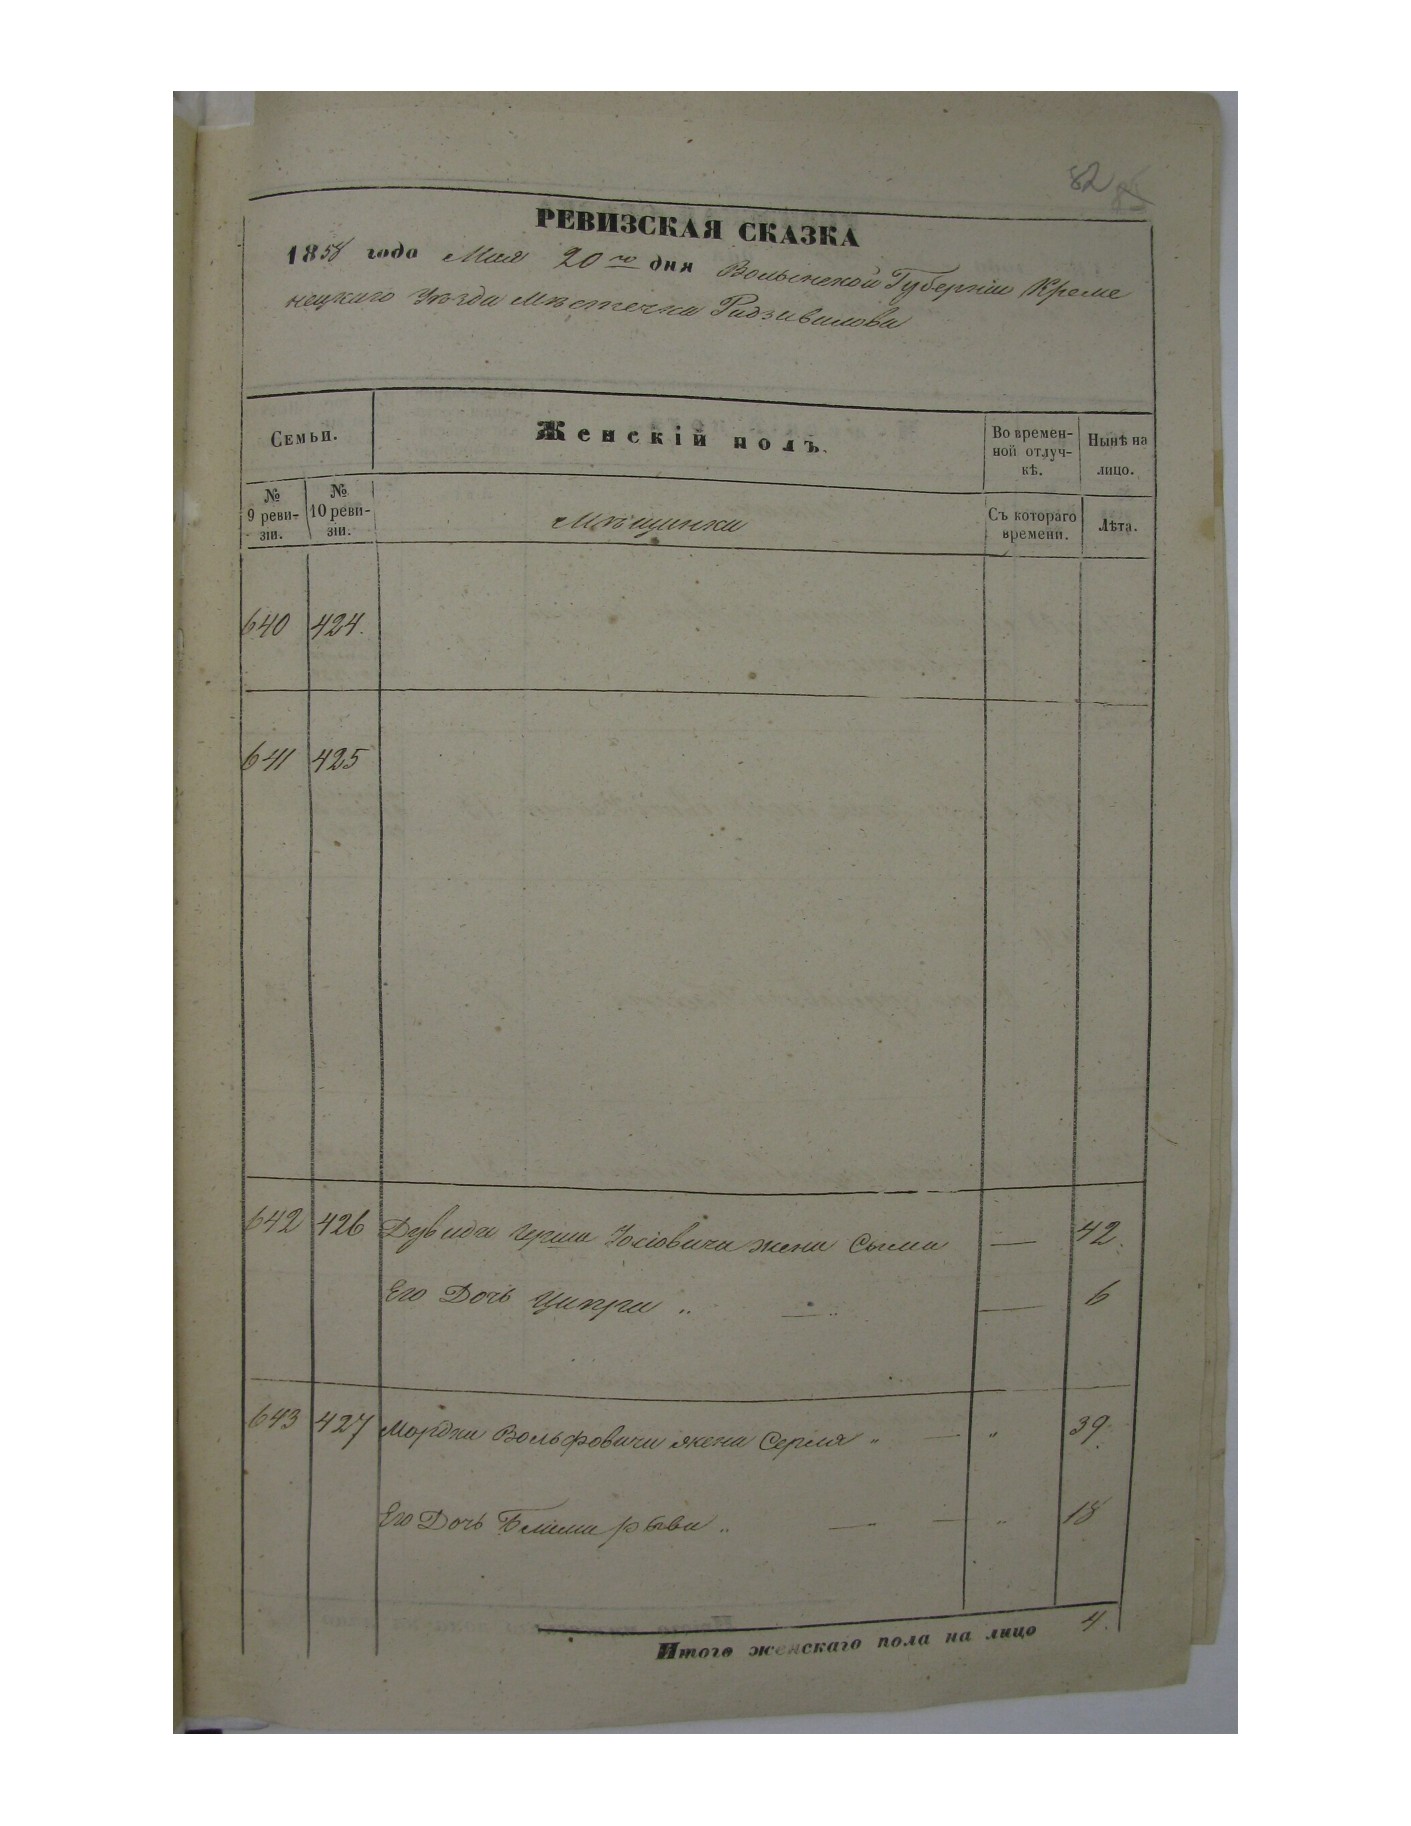 82 85
РЕВИЗСКАЯ СКАЗКА
1858 года Мая 20го дня Волынской Губерніи Креме
нецкаго Уѣзда Мѣстечка Радзивилова
Семьи.
Женскій полъ.
Во времен-
ной отлуч-
кѣ.
Нынѣ на
лицо.
№
9 реви-
зіи.
№
10 реви-
зіи.
Мѣщанки
Съ котораго
времени.
Лѣта.
640 424.
641 425
642 426 Дувида Герша Іосіовича жена Сыма — 42.
Его Дочь Ципра „ — „ — 6
643 427 Мордка Вольфовича жена Серля „ — „ 39.
Его Дочь Блима Рыва „ — — „ 18
Итого женскаго пола на лицо 4.